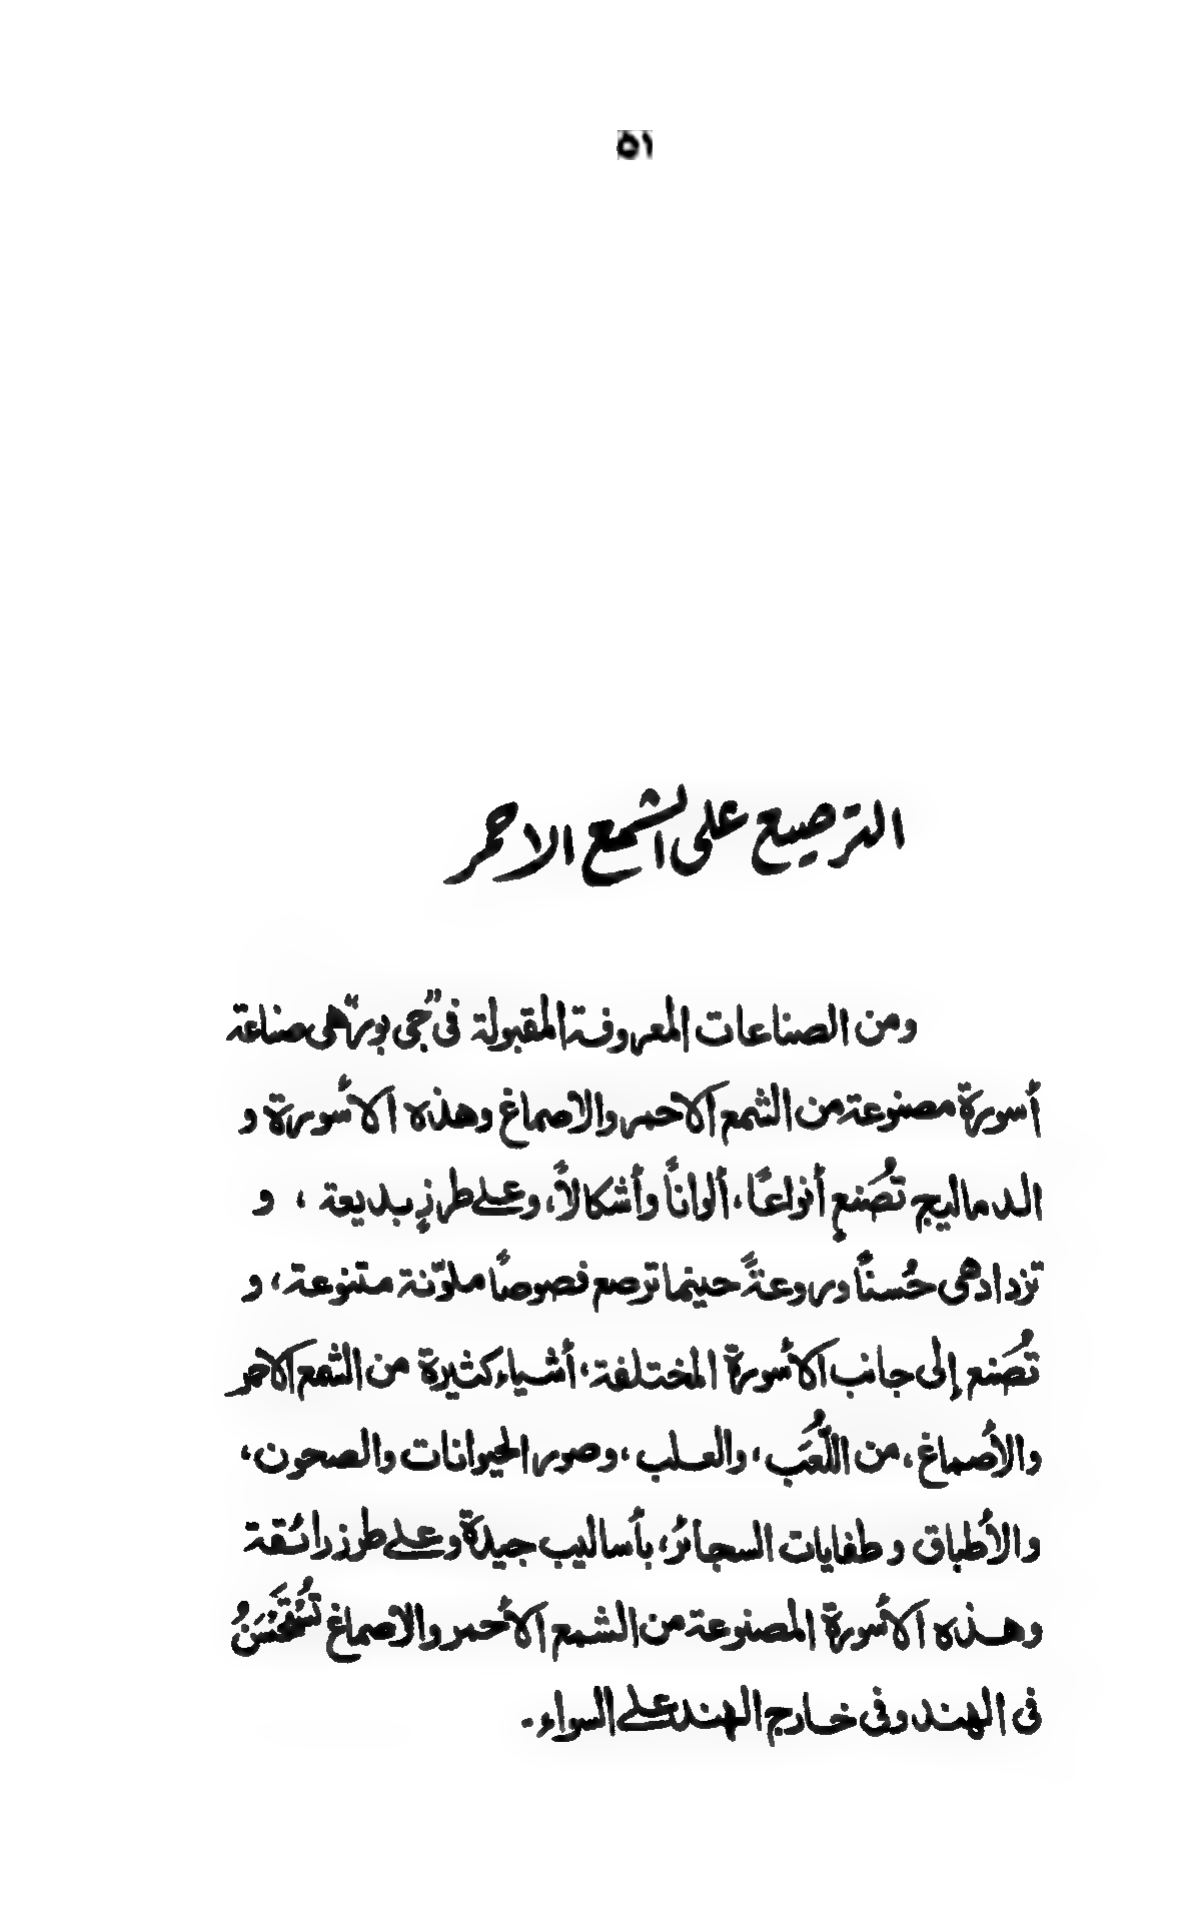 ٥١
الترصيع على الشمع الاحمر
ومن الصناعات المعروفة المقبولة فى "جى بور" هى صناعة
أسورة مصنوعة من الشمع الاحمر والاصماغ وهذه الأسورة و
الدماليج تُصَنع أنواعًا، ألوانًا وأشكالاً، وعلى طرزٍ بديعة ، و
تزداد هى حُسنًا وروعةً حينما ترصع فصوصًا ملوّنة متنوعة، و
تُصَنع إلى جانب الأسورة المختلفة، أشياء كثيرة من الشمع الاحمر
والأصماغ، من اللُّعَب، والعلب، وصور الحيوانات والصحون،
والأطباق وطفايات السجائر، بأساليب جيدة وعلى طرز رائقة
وهذه الأسورة المصنوعة من الشمع الأحمر والاصماغ تُسْتَحْسَنُ
فى الهند وفى خارج الهند على السواء.